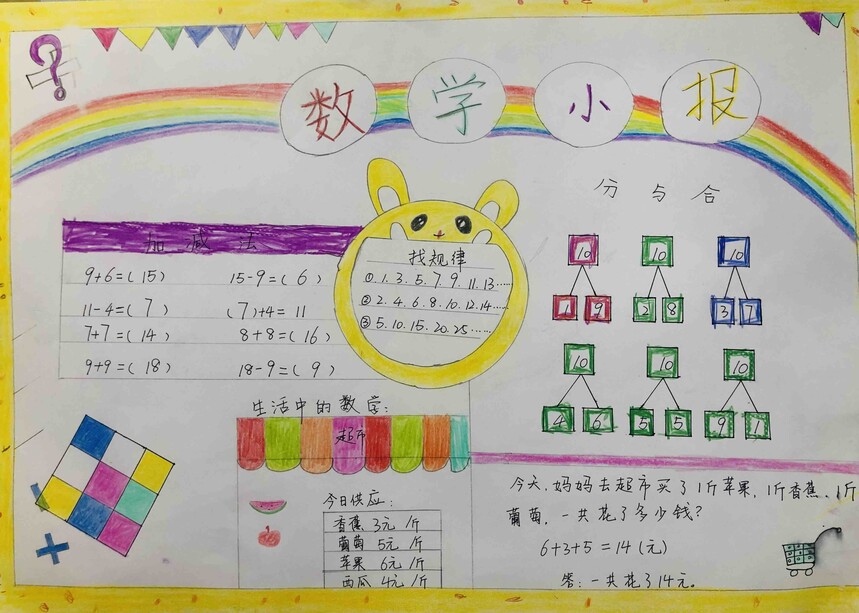 数学小报
加减法
9+6=(15) 15-9=(6)
11-4=(7) (7)+4=11
7+7=(14) 8+8=(16)
9+9=(18) 18-9=(9)
找规律
①1.3.5.7.9.11.13……
②2.4.6.8.10.12.14……
③5.10.15.20.25……
分与合
10 10 10
1 9 2 8 3 7
10 10 10
4 6 5 5 9 1
生活中的数学:
超市
今日供应:
香蕉 3元/斤
葡萄 5元/斤
苹果 6元/斤
西瓜 4元/斤
今天,妈妈去超市买了1斤苹果,1斤香蕉,1斤
葡萄,一共花了多少钱?
6+3+5=14(元)
答:一共花了14元.